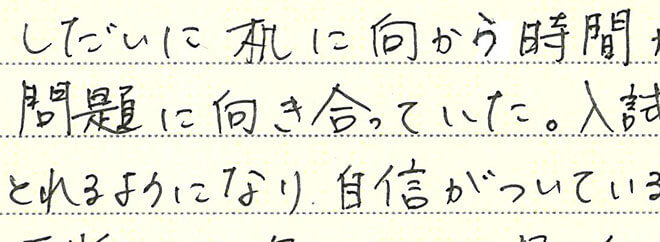 しだいに机に向かう時間
問題に向き合っていた。入試
とれるようになり自信がついている